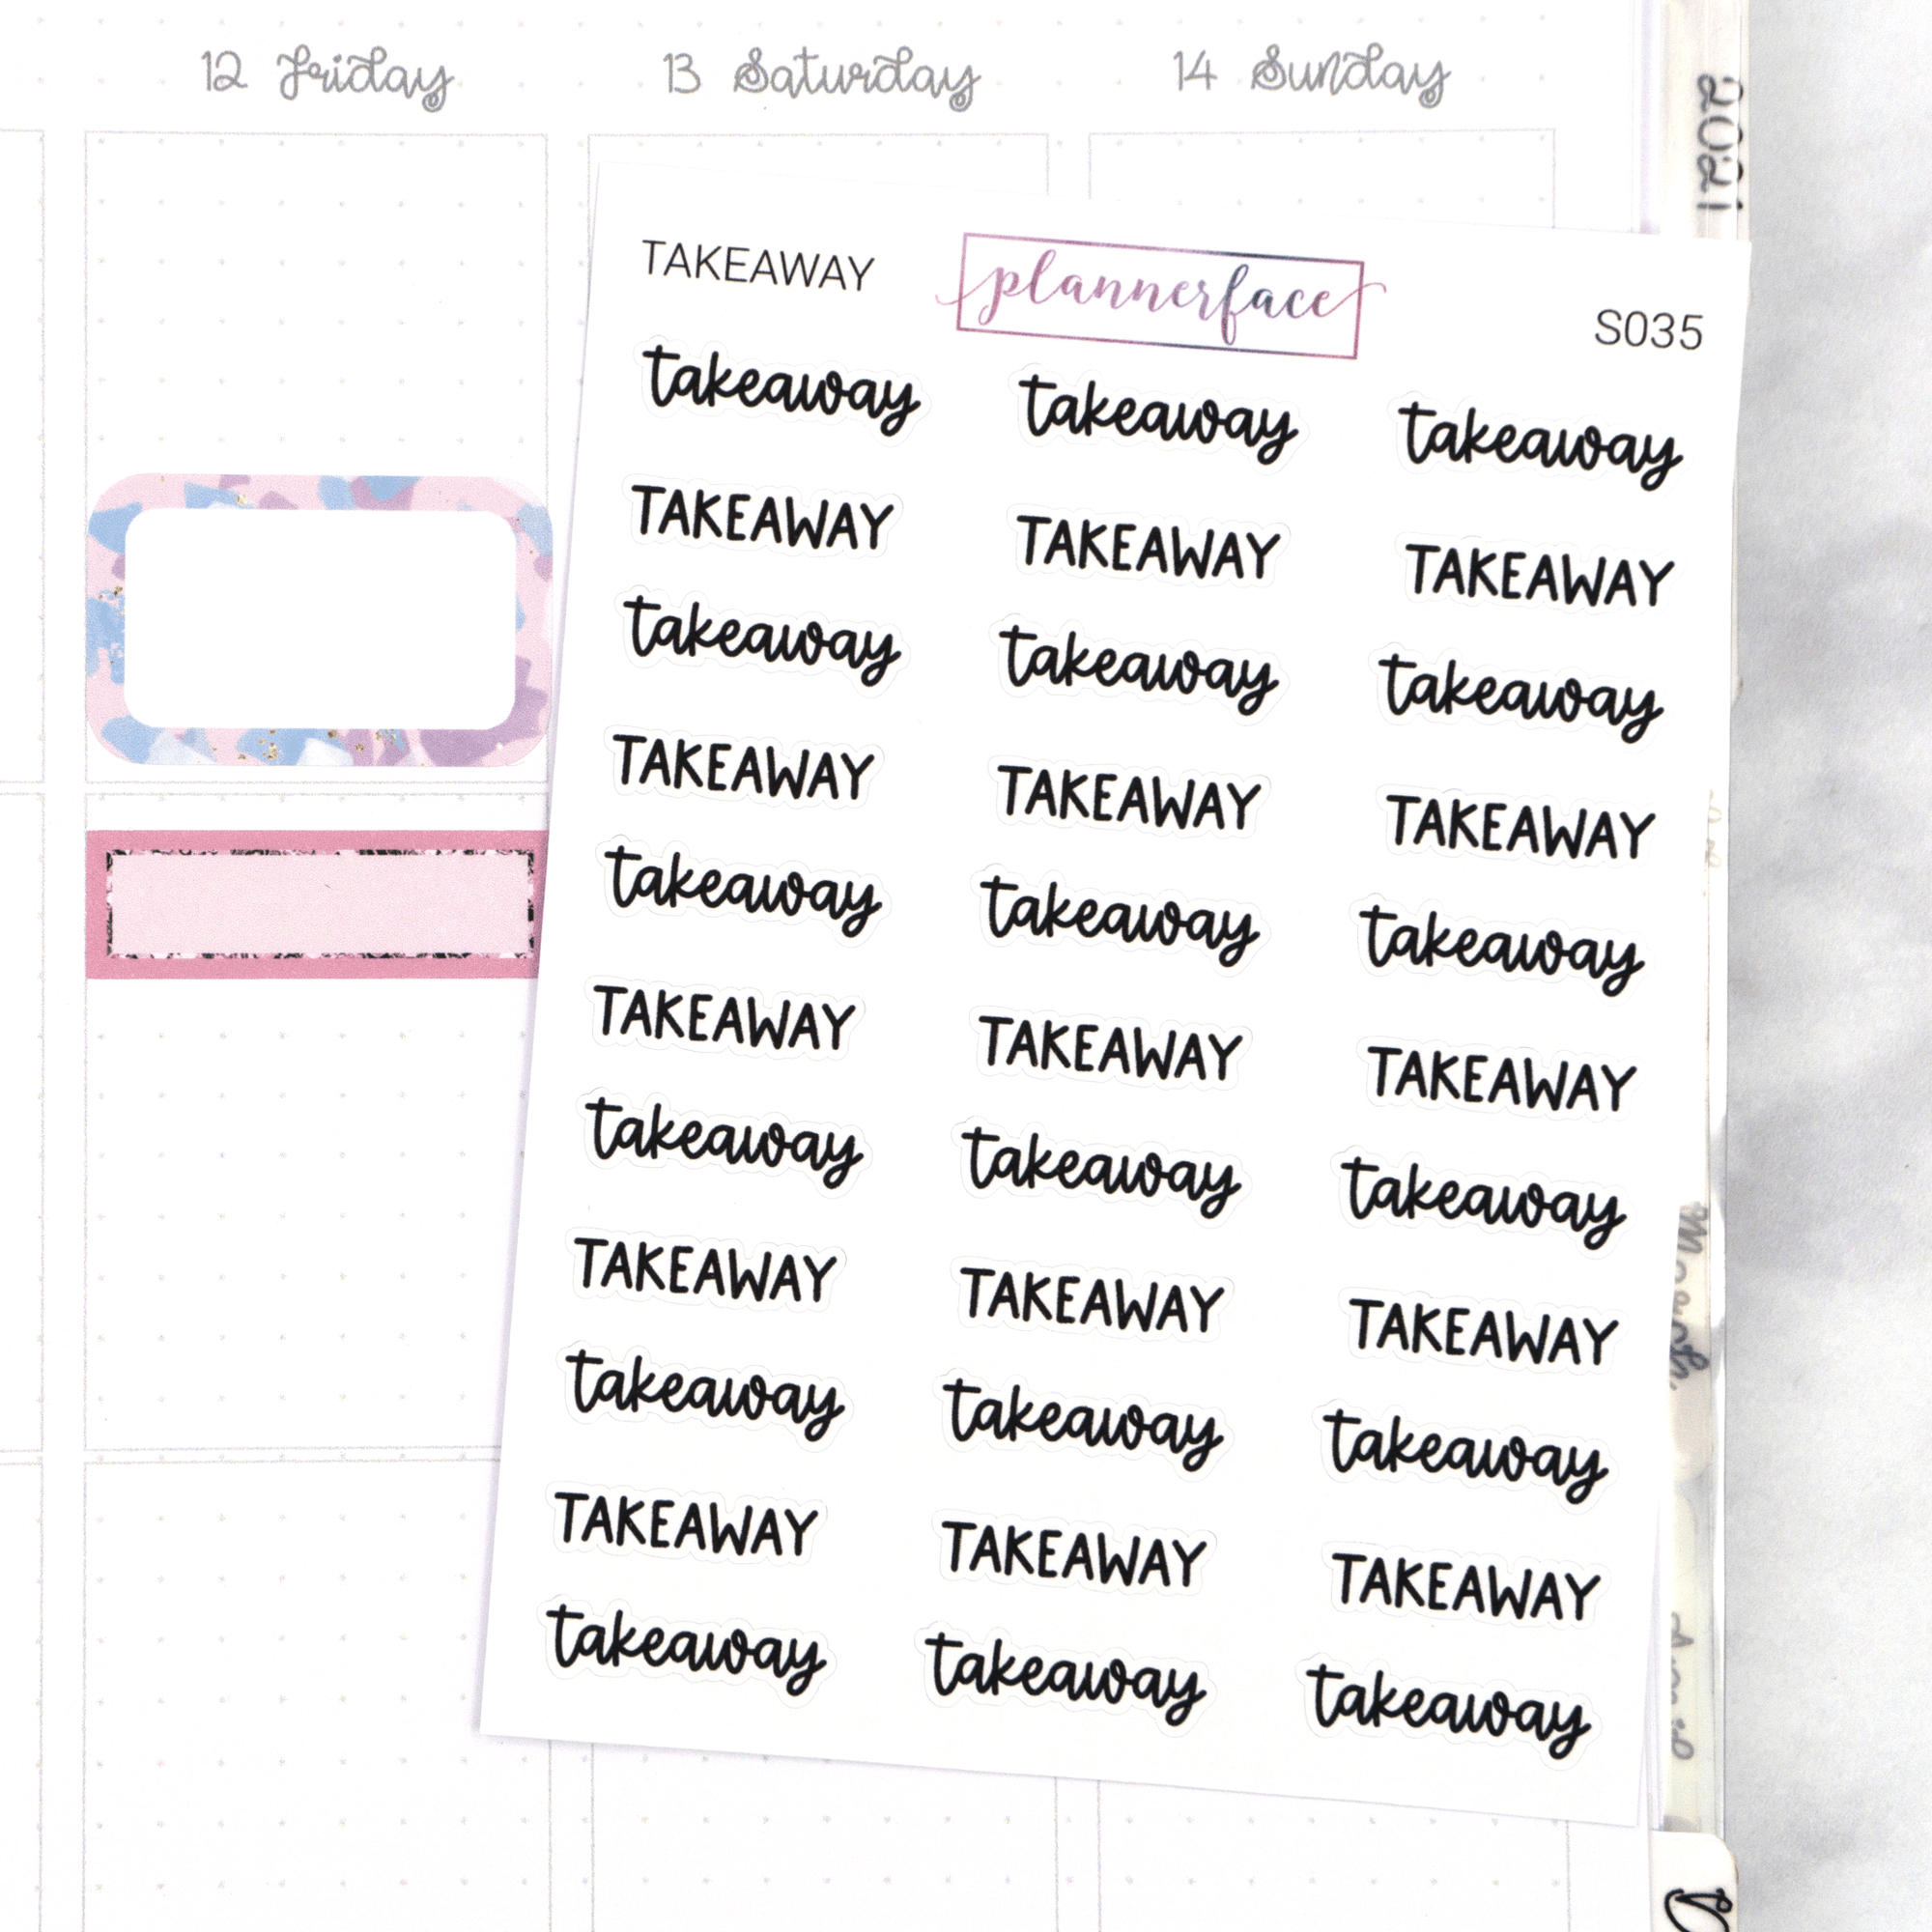 12 Friday 13 Saturday 14 Sunday
2021
TAKEAWAY plannerface S035
takeaway takeaway takeaway
TAKEAWAY TAKEAWAY TAKEAWAY
takeaway takeaway takeaway
TAKEAWAY TAKEAWAY TAKEAWAY
takeaway takeaway takeaway
TAKEAWAY TAKEAWAY TAKEAWAY
takeaway takeaway takeaway
TAKEAWAY TAKEAWAY TAKEAWAY
takeaway takeaway takeaway
TAKEAWAY TAKEAWAY TAKEAWAY
takeaway takeaway takeaway